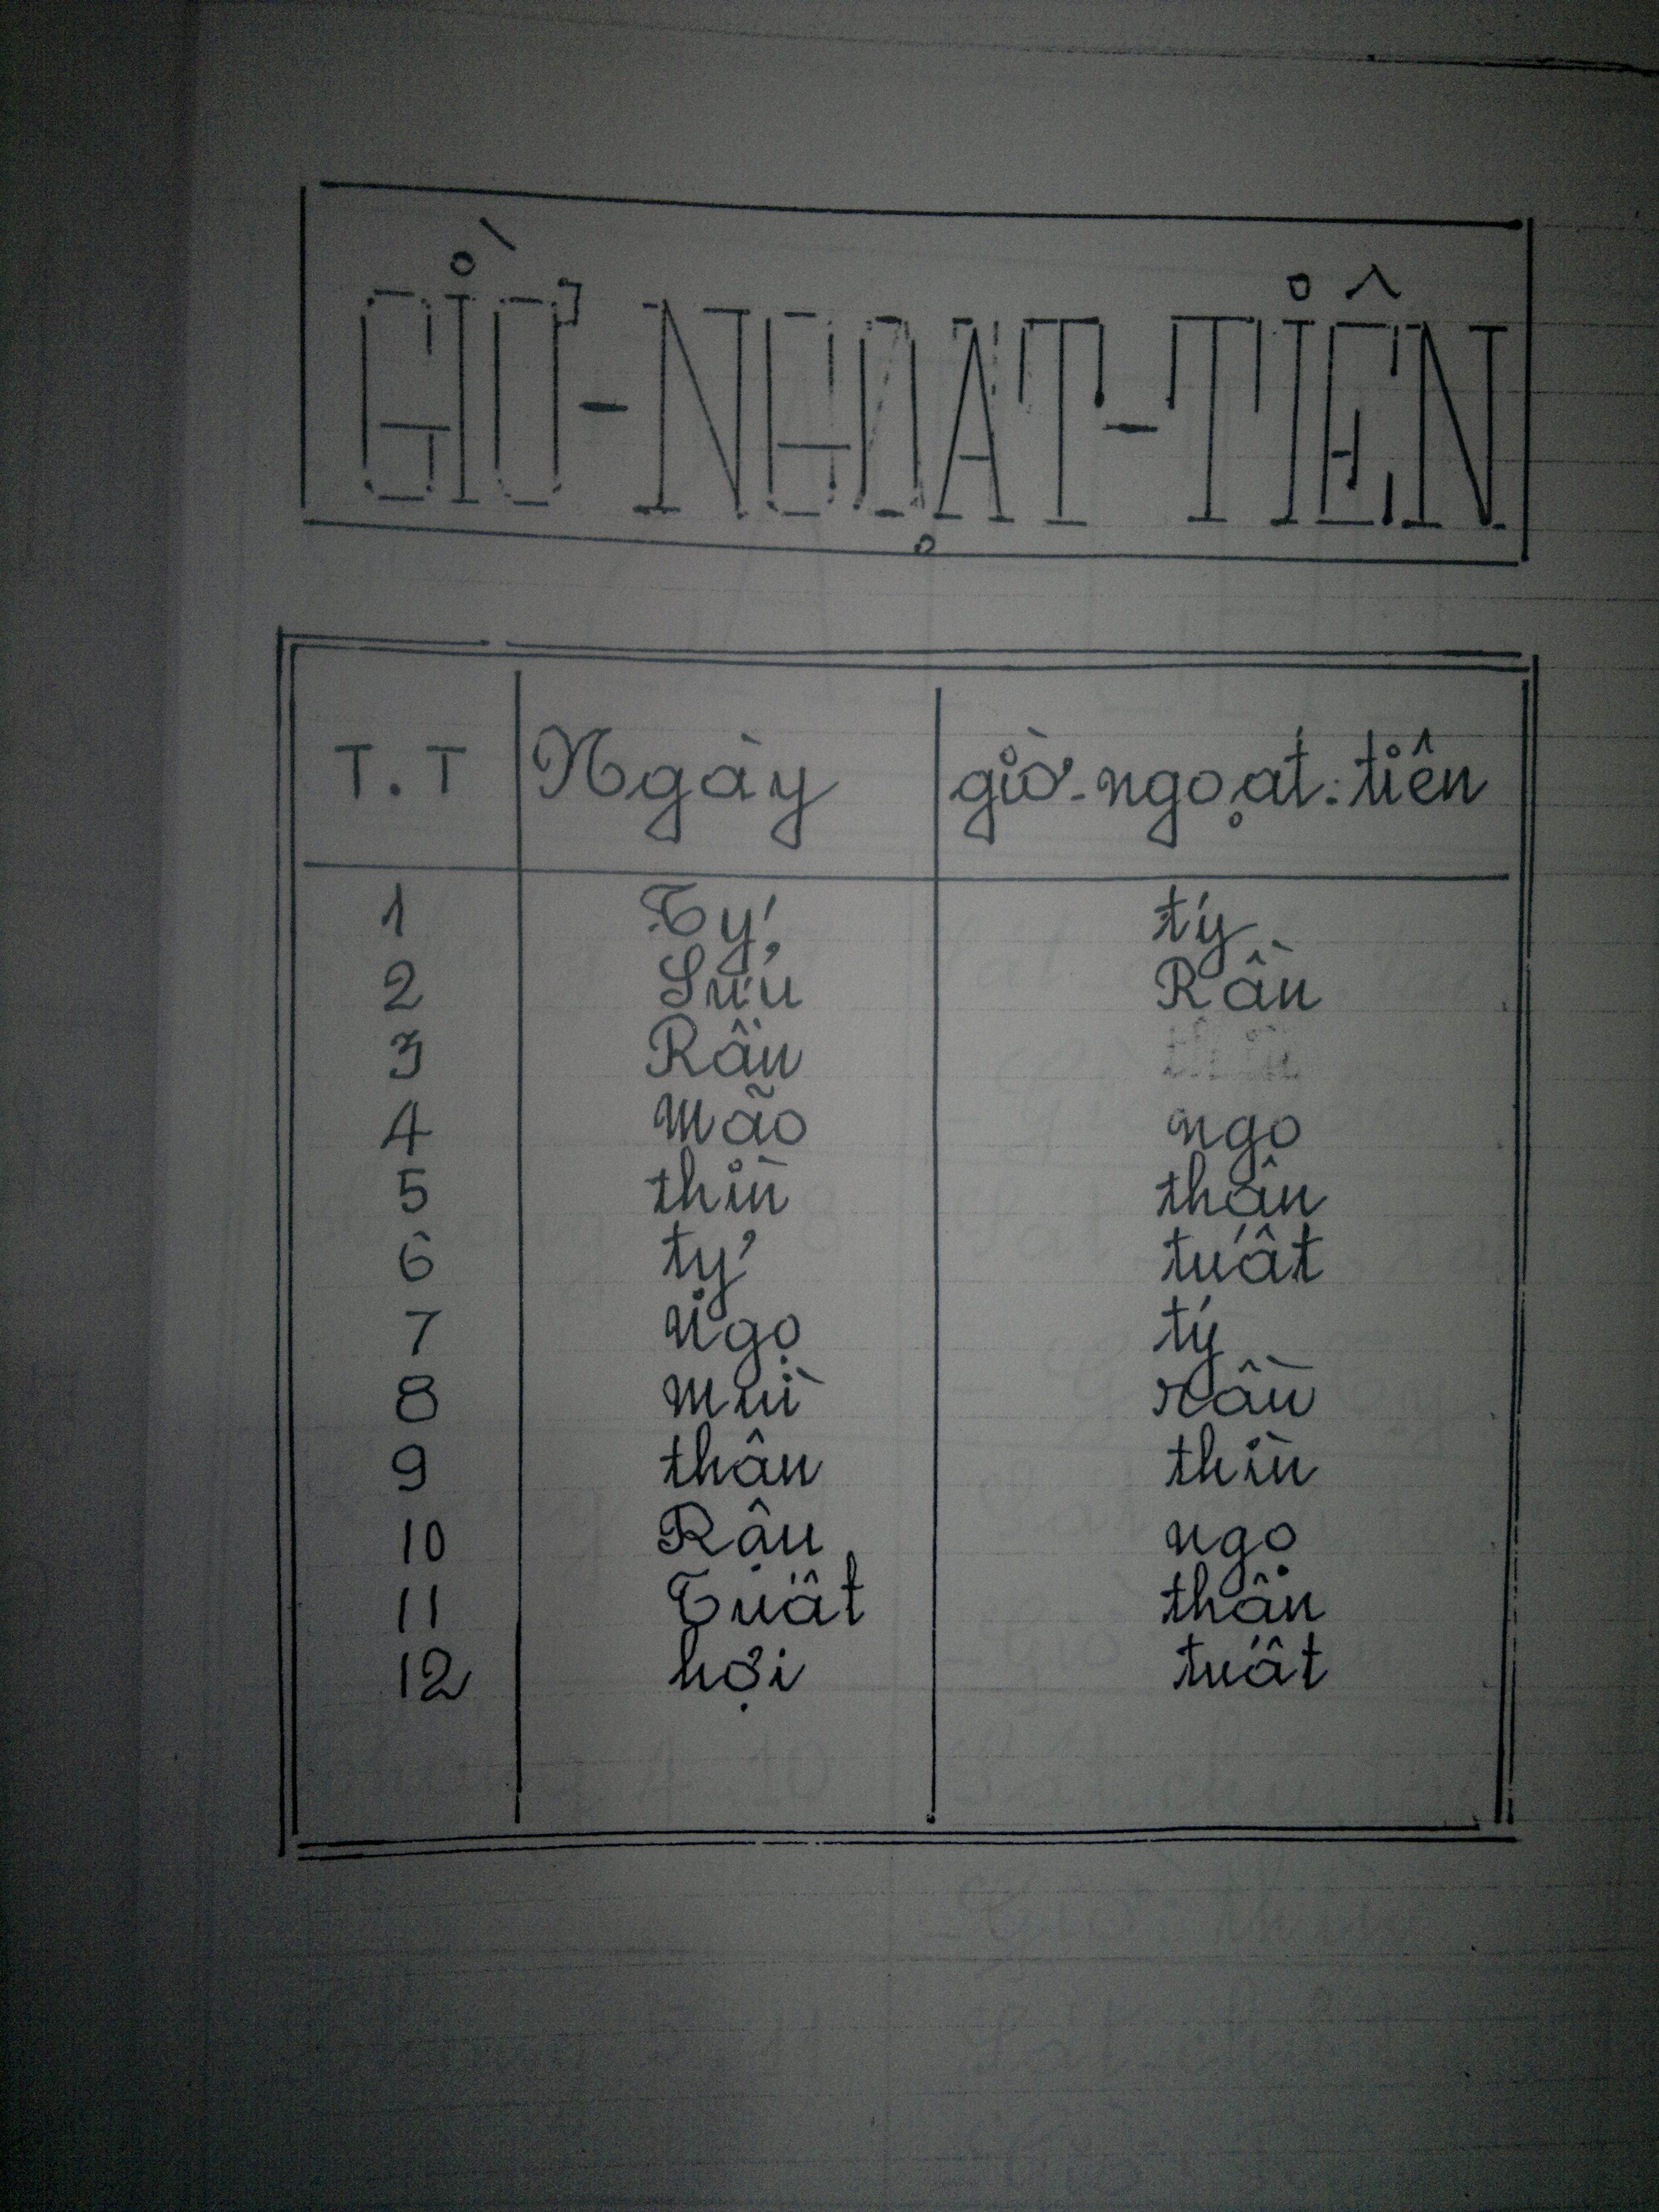 GIỜ-NGOẠT-TIÊN
T.T Ngày giờ-ngoạt:tiên
1 Tý tý
2 Sửu Rần
3 Rần thìn
4 Mão ngọ
5 thìn thân
6 tỵ tuất
7 Ngọ tý
8 mùi rần
9 thân thìn
10 Rậu ngọ
11 Tuất thân
12 hợi tuất